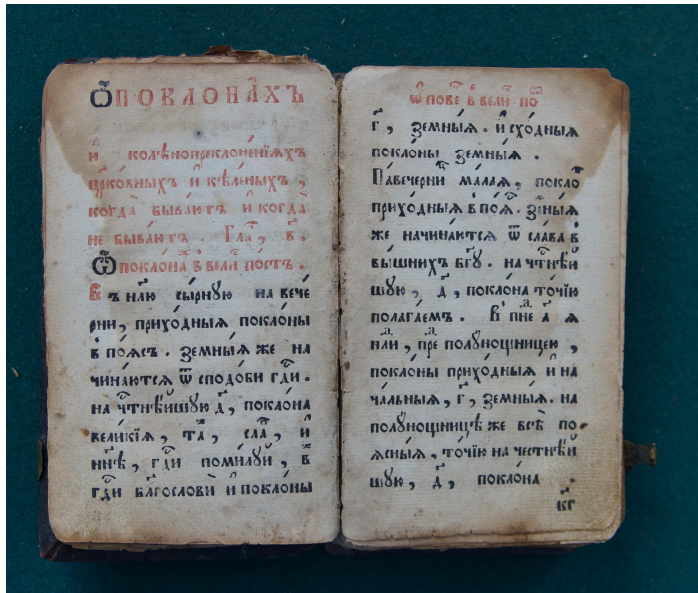 Ѿ ПОКЛОНА́ХЪ
и҆ колѣнопреклоне́нїѧхъ
цр҃ковныхъ и҆ кѣ́леныхъ ,
когда̀ быва́ютъ и҆ когда̀
не быва́ютъ . Гла̑ , в҃ .
Ѿ поклона́ в вели̑ по́стъ .
Въ нл҃ю сы́рнꙋю на вече́
рни , прихо́дныѧ покло́ны
в по́ѧсъ . земны́ѧ же на
чина́ютсѧ ѿ сподо́би гд҃и .
на чт҃нѣ́йшꙋю д҃ , покло́на
вели́кїѧ , та̑ , сла̑ , и҆
нн҃ѣ , гд҃и поми́лꙋй , в҃
гд҃и бл҃гослови̑ и҆ покло́ны
ѿ пове̑ в вели̑ по̑
г҃ , земны́ѧ . и҆схо́дныѧ
покло́ны земны́ѧ .
Павече́рни ма́лаѧ , покло̑
прихо́дныѧ в поѧ̑ . зе̑ныѧ
же начина́ютсѧ ѿ сла́ва в
вы́шнихъ бг҃ꙋ . на чт҃нѣ́й
шꙋю , д҃ , покло́на то́чїю
полага́емъ . В пне̑ а҃ ѧ
нл҃и , пре̑ полꙋно́щницею ,
покло́ны прихо́дныѧ и҆ на
ча́льныѧ , г҃ , земны́ѧ . на
полꙋно́щницѣ же всѣ̀ по
ѧсны́ѧ , то́чїю на честнѣ́й
шꙋю , д҃ , покло́на .
кг҃